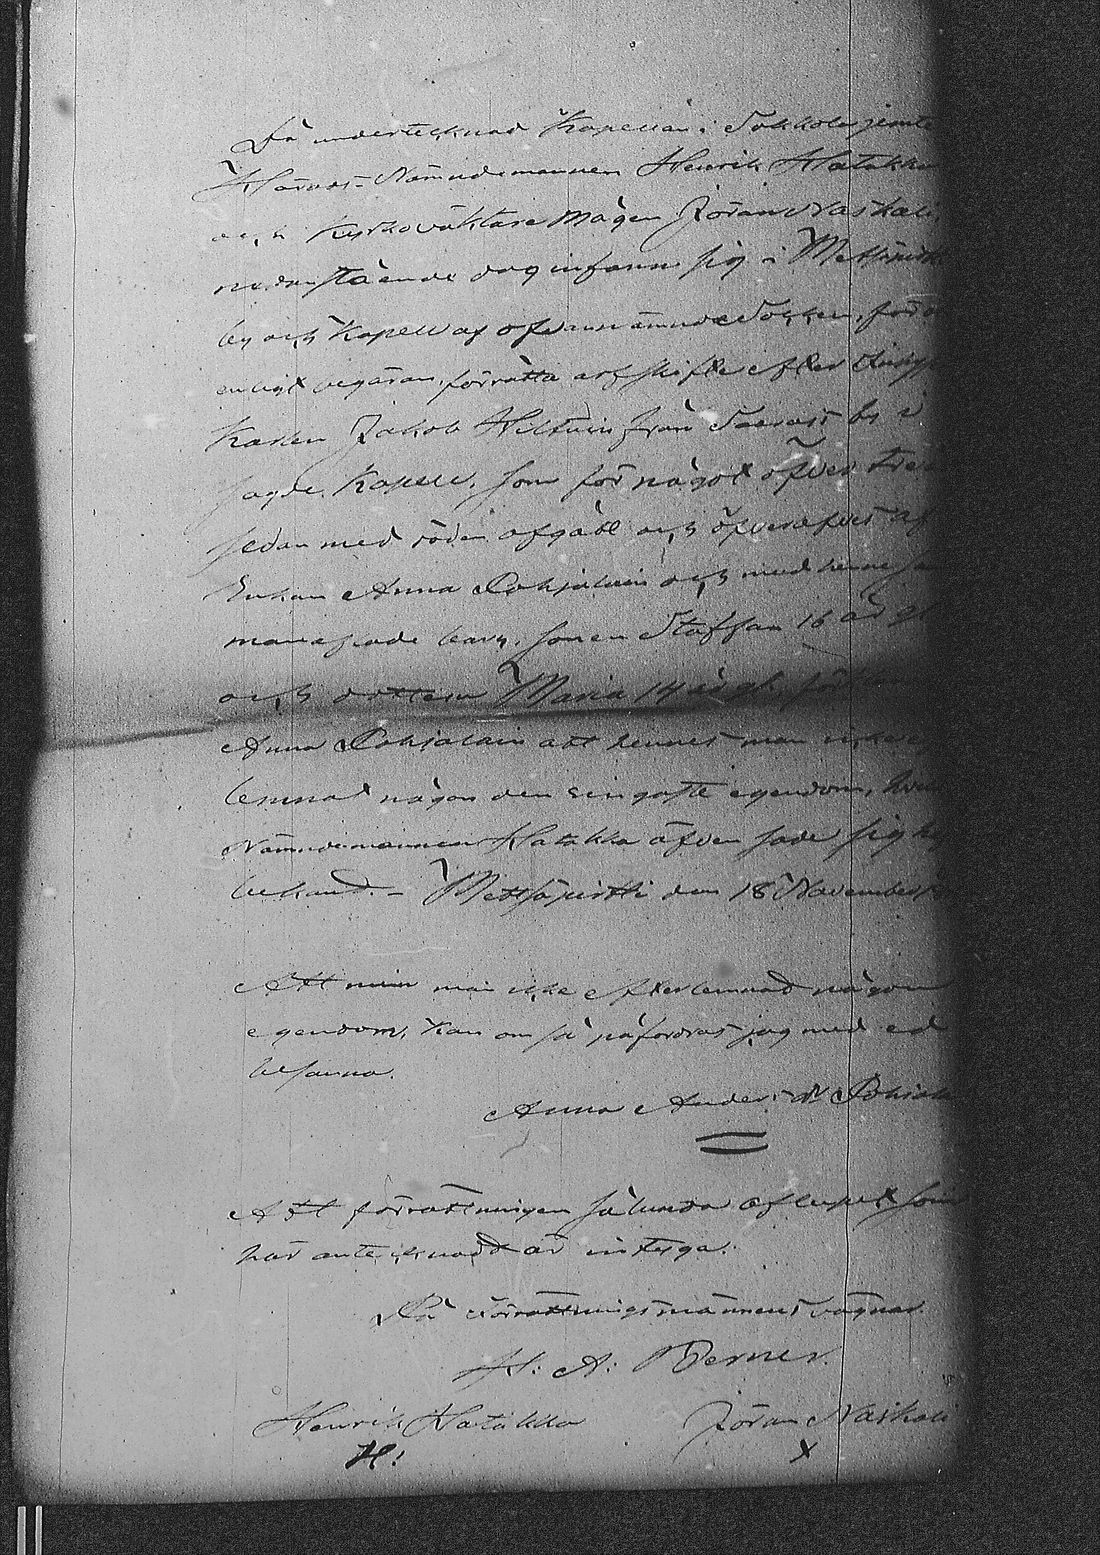 Då undertecknad Kapellan i Sakkola jemte
Härads-Nämndemannen Henrik Hatakka
och Kyrkoväktare Mågen Jöran Naskali
nedanstående dag infann sig i Metsäpirtti
by och Kapell af ofvannämnde Socken, för a
enligt begäran, förrätta arfskifte efter Inhyse
Karlen Jakob Hiltuin från Saaroist by i
sagde Kapell, som för något öfver tre
sedan med döden afgått och öfverlefves af
Enkan Anna Pohjalain och med henne sam
manaflade barn, sonen Staffan 16 år gl
och dottern Maria 14 år gl.
Anna Pohjalain att hennes man icke ef
lemnat någon den ringaste egendom, hvar
Nämndemannen Hatakka äfven sade sig
bekand - Metsäpirtti den 18 November
Att min man icke efterlemnad någon
egendom, kan om så påfordras jag med ed
besanna.
Anna Anders dr Pohjal
Att förrättningen sålunda aflupet som
här antecknadt är intyga.
På Förrättningsmännens vägnar
H: A: Berner.
Henrik Hatakka Jöran Naskali
H: X